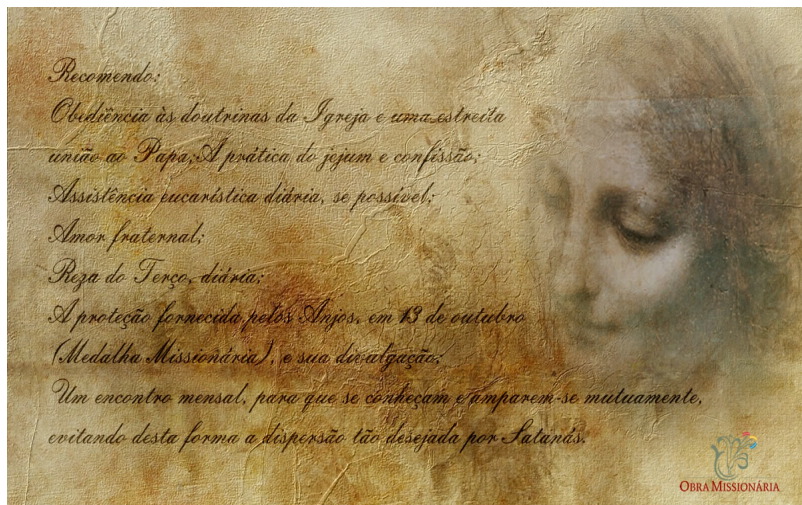 Recomendo:
Obediência às doutrinas da Igreja e uma estreita
união ao Papa; A prática do jejum e confissão;
Assistência eucarística diária, se possível;
Amor fraternal;
Reza do Terço, diária;
A proteção fornecida pelos Anjos, em 13 de outubro
(Medalha Missionária), e sua divulgação;
Um encontro mensal, para que se conheçam e amparem-se mutuamente,
evitando desta forma a dispersão tão desejada por Satanás.
OBRA MISSIONÁRIA